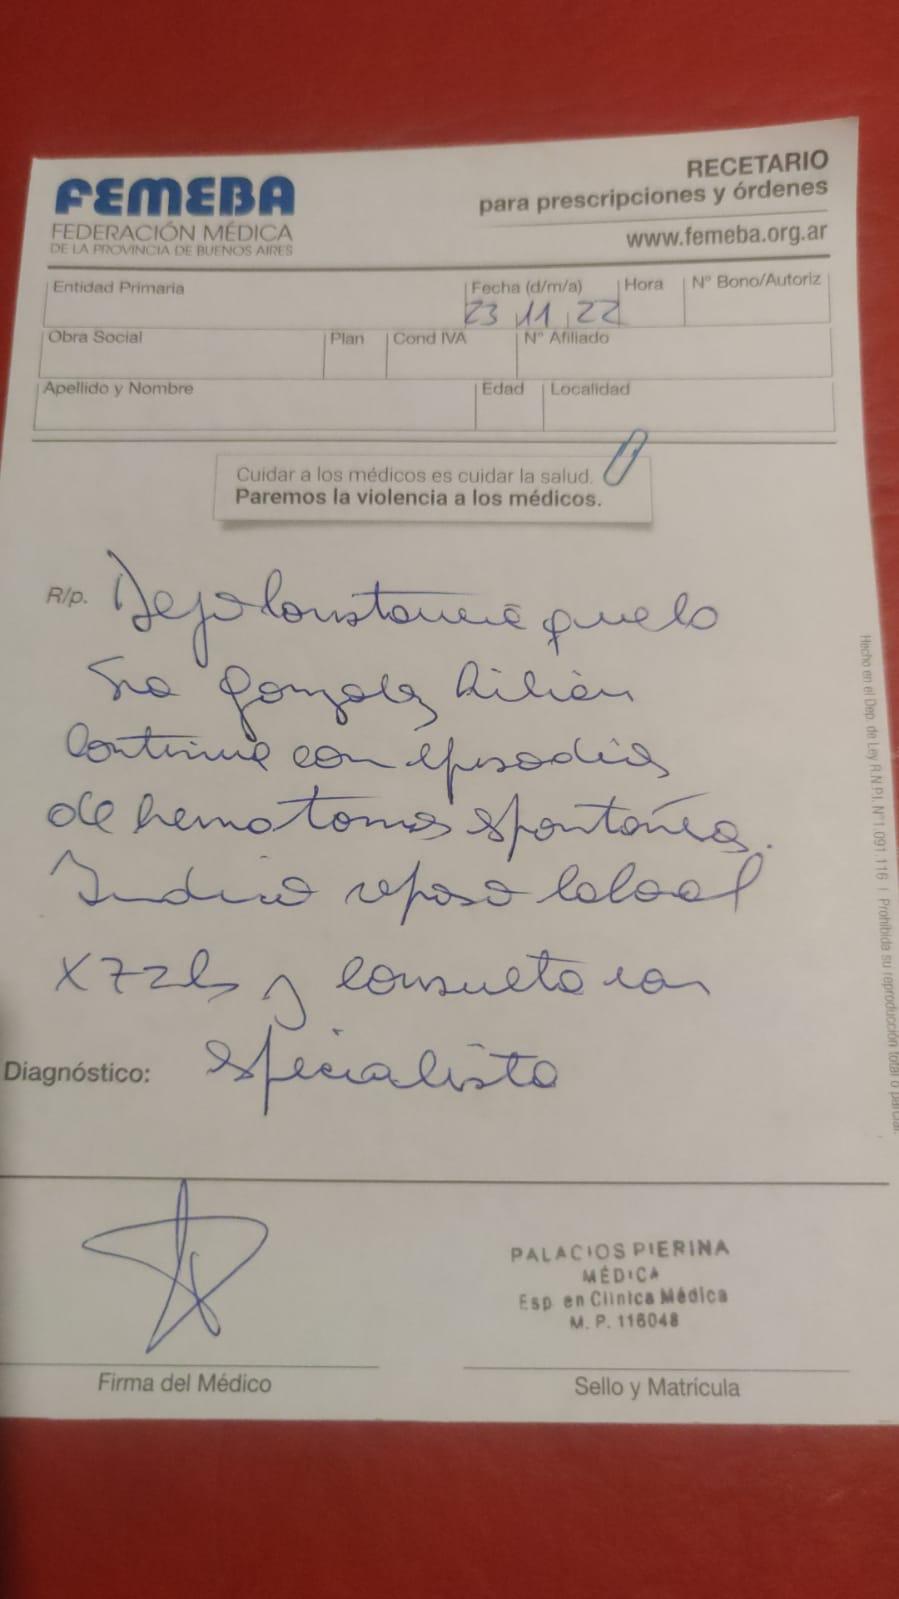 FEMEBA
FEDERACIÓN MÉDICA
DE LA PROVINCIA DE BUENOS AIRES
RECETARIO
para prescripciones y órdenes
www.femeba.org.ar
Entidad Primaria Fecha (d/m/a) Hora Nº Bono/Autoriz
23 11 22
Obra Social Plan Cond IVA Nº Afiliado
Apellido y Nombre Edad Localidad
Cuidar a los médicos es cuidar la salud.
Paremos la violencia a los médicos.
R/p. Dejo constancia que la
Sra Gonzalez Lilian
continua con episodios
de hematomas espontáneos.
Indico reposo laboral
x 72 hs y consulta con
Diagnóstico: especialista
Firma del Médico
PALACIOS PIERINA
MÉDICA
Esp. en Clínica Médica
M. P. 116048
Sello y Matrícula
Hecho en el Dep. de Ley R.N.P.I. Nº1.091.116 I Prohibida su reproducción total o parcial.